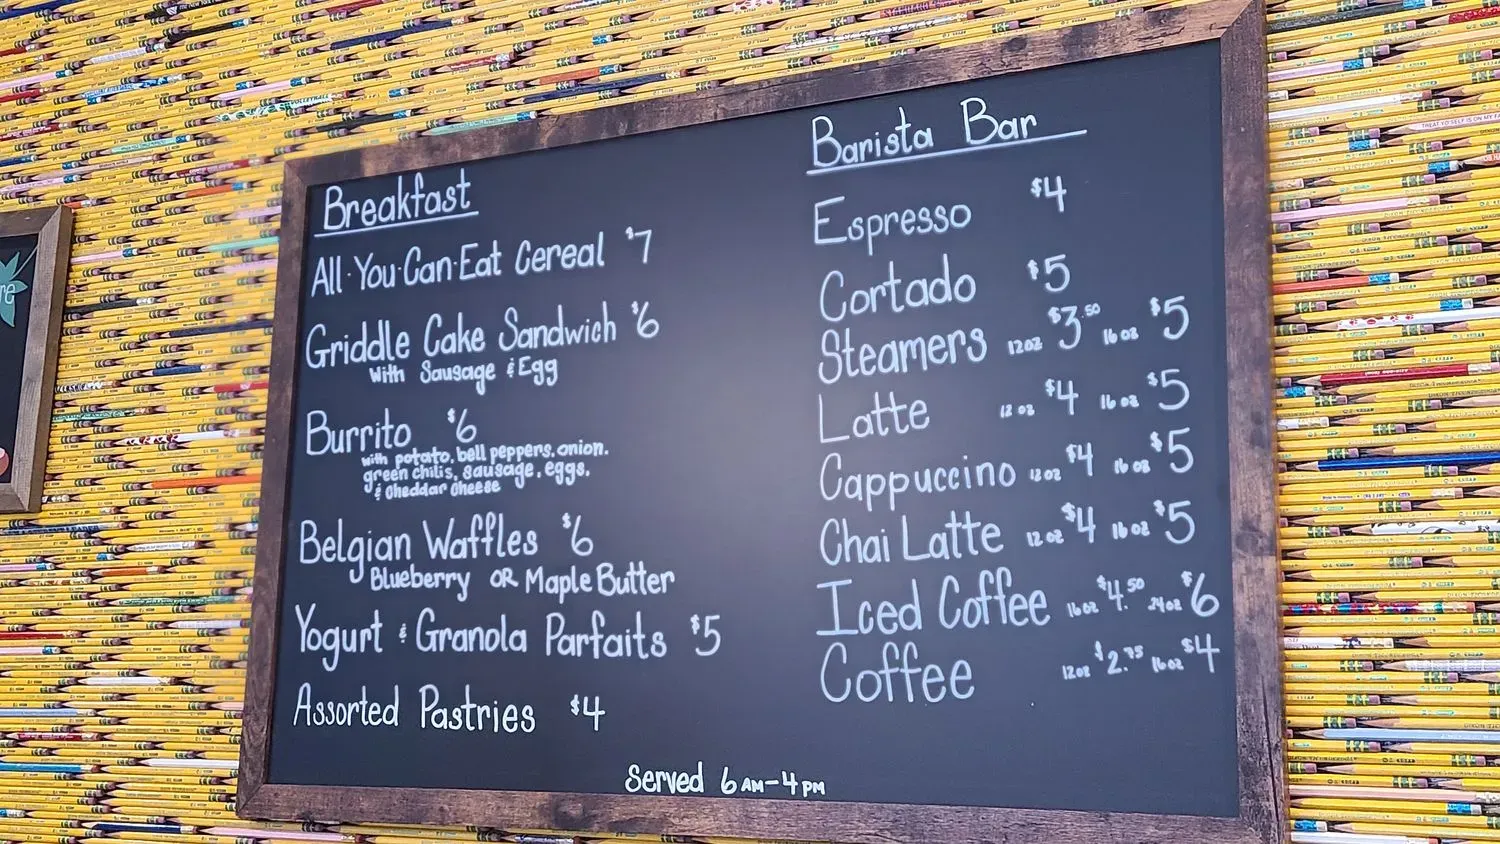 Breakfast
All·You·Can·Eat Cereal $7
Griddle Cake Sandwich $6
with Sausage & Egg
Burrito $6
with potato, bell peppers, onion,
green chilis, sausage, eggs,
& cheddar cheese
Belgian Waffles $6
Blueberry OR Maple Butter
Yogurt & Granola Parfaits $5
Assorted Pastries $4
Barista Bar
Espresso $4
Cortado $5
Steamers 12oz $3.50 16oz $5
Latte 12oz $4 16oz $5
Cappuccino 12oz $4 16oz $5
Chai Latte 12oz $4 16oz $5
Iced Coffee 16oz $4.50 24oz $6
Coffee 12oz $2.75 16oz $4
Served 6AM-4PM